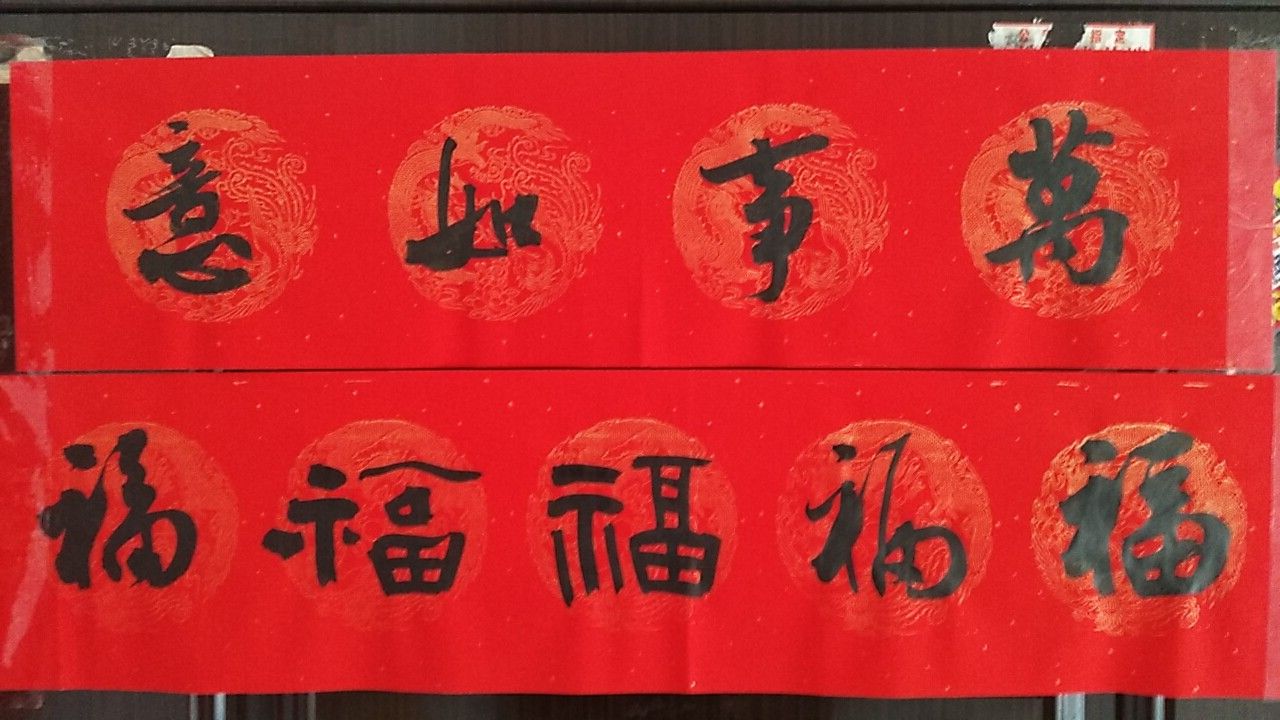 萬事如意
福福福福福